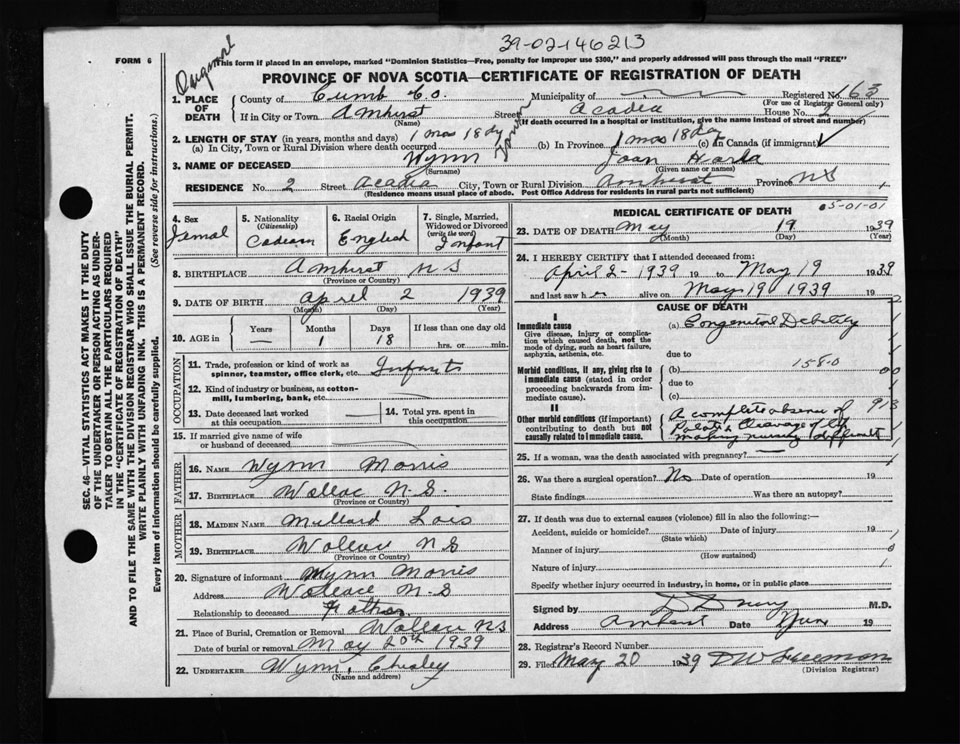 39-02-146213
FORM 6
This form if placed in an envelope, marked "Dominion Statistics—Free, penalty for improper use $300," and properly addressed will pass through the mail "FREE"
PROVINCE OF NOVA SCOTIA—CERTIFICATE OF REGISTRATION OF DEATH
1. PLACE OF DEATH
County of Cumb Co. Municipality of Registered No. 163
(For use of Registrar General only)
If in City or Town Amherst Street Acadia House No. 2
(Name) (If death occurred in a hospital or institution, give the name instead of street and number)
2. LENGTH OF STAY (in years, months and days)
(a) In City, Town or Rural Division where death occurred 1 mos 18 dy (b) In Province 1 mos 18 day (c) in Canada (if immigrant)
3. NAME OF DECEASED Wynn Joan
(Surname) (Given name or names)
RESIDENCE No. 2 Street Acadia City, Town or Rural Division Amherst Province NS
(Residence means usual place of abode. Post Office Address for residents in rural parts not sufficient)
4. Sex
Femal
5. Nationality
(Citizenship)
Cadean
6. Racial Origin
English
7. Single, Married, Widowed or Divorced
(write the word)
Infant
8. BIRTHPLACE Amherst NS
(Province or Country)
9. DATE OF BIRTH April 2 1939
(Month) (Day) (Year)
10. AGE in
Years Months Days If less than one day old
— 1 18 hrs. or min.
OCCUPATION
11. Trade, profession or kind of work as spinner, teamster, office clerk, etc. Infants
12. Kind of industry or business, as cotton-mill, lumbering, bank, etc.
13. Date deceased last worked at this occupation
14. Total yrs. spent in this occupation
15. If married give name of wife or husband of deceased
FATHER
16. NAME Wynn Morris
17. BIRTHPLACE Wallac N.S.
(Province or Country)
MOTHER
18. MAIDEN NAME Millard Lois
19. BIRTHPLACE Wallace NS
(Province or Country)
20. Signature of informant Wynn Morris
Address Wallace N-S
Relationship to deceased Father
21. Place of Burial, Cremation or Removal Wallace NS
Date of burial or removal May 20th 1939
22. UNDERTAKER Wynn, Chesley
(Name and address)
MEDICAL CERTIFICATE OF DEATH
5-01-01
23. DATE OF DEATH May 19 1939
(Month) (Day) (Year)
24. I HEREBY CERTIFY that I attended deceased from:
April 2 - 1939 19 to May 19 1939
and last saw her alive on May 19 1939 19
CAUSE OF DEATH
I
Immediate cause
Give disease, injury or complication which caused death, not the mode of dying, such as heart failure, asphyxia, asthenia, etc.
(a) Congenital Debility
due to
Morbid conditions, if any, giving rise to immediate cause (stated in order proceeding backwards from immediate cause).
(b) 158-0
due to
(c)
II
Other morbid conditions (if important) contributing to death but not causally related to immediate cause.
A complete absence of
Palate & Cleavage of lip
making nursing difficult
25. If a woman, was the death associated with pregnancy? —
26. Was there a surgical operation? No Date of operation 19
State findings Was there an autopsy?
27. If death was due to external causes (violence) fill in also the following:—
Accident, suicide or homicide? Date of injury 19
(State which)
Manner of injury
(How sustained)
Nature of injury
Specify whether injury occurred in industry, in home, or in public place
Signed by M.D.
Address Amherst Date 19
28. Registrar's Record Number
29. Filed May 20 1939 DW Freeman
(Division Registrar)
SEC. 46—VITAL STATISTICS ACT MAKES IT THE DUTY
OF THE UNDERTAKER OR PERSON ACTING AS UNDER-
TAKER TO OBTAIN ALL THE PARTICULARS REQUIRED
IN THE "CERTIFICATE OF REGISTRATION OF DEATH"
AND TO FILE THE SAME WITH THE DIVISION REGISTRAR WHO SHALL ISSUE THE BURIAL PERMIT.
WRITE PLAINLY WITH UNFADING INK. THIS IS A PERMANENT RECORD.
Every item of information should be carefully supplied. (See reverse side for instructions.)